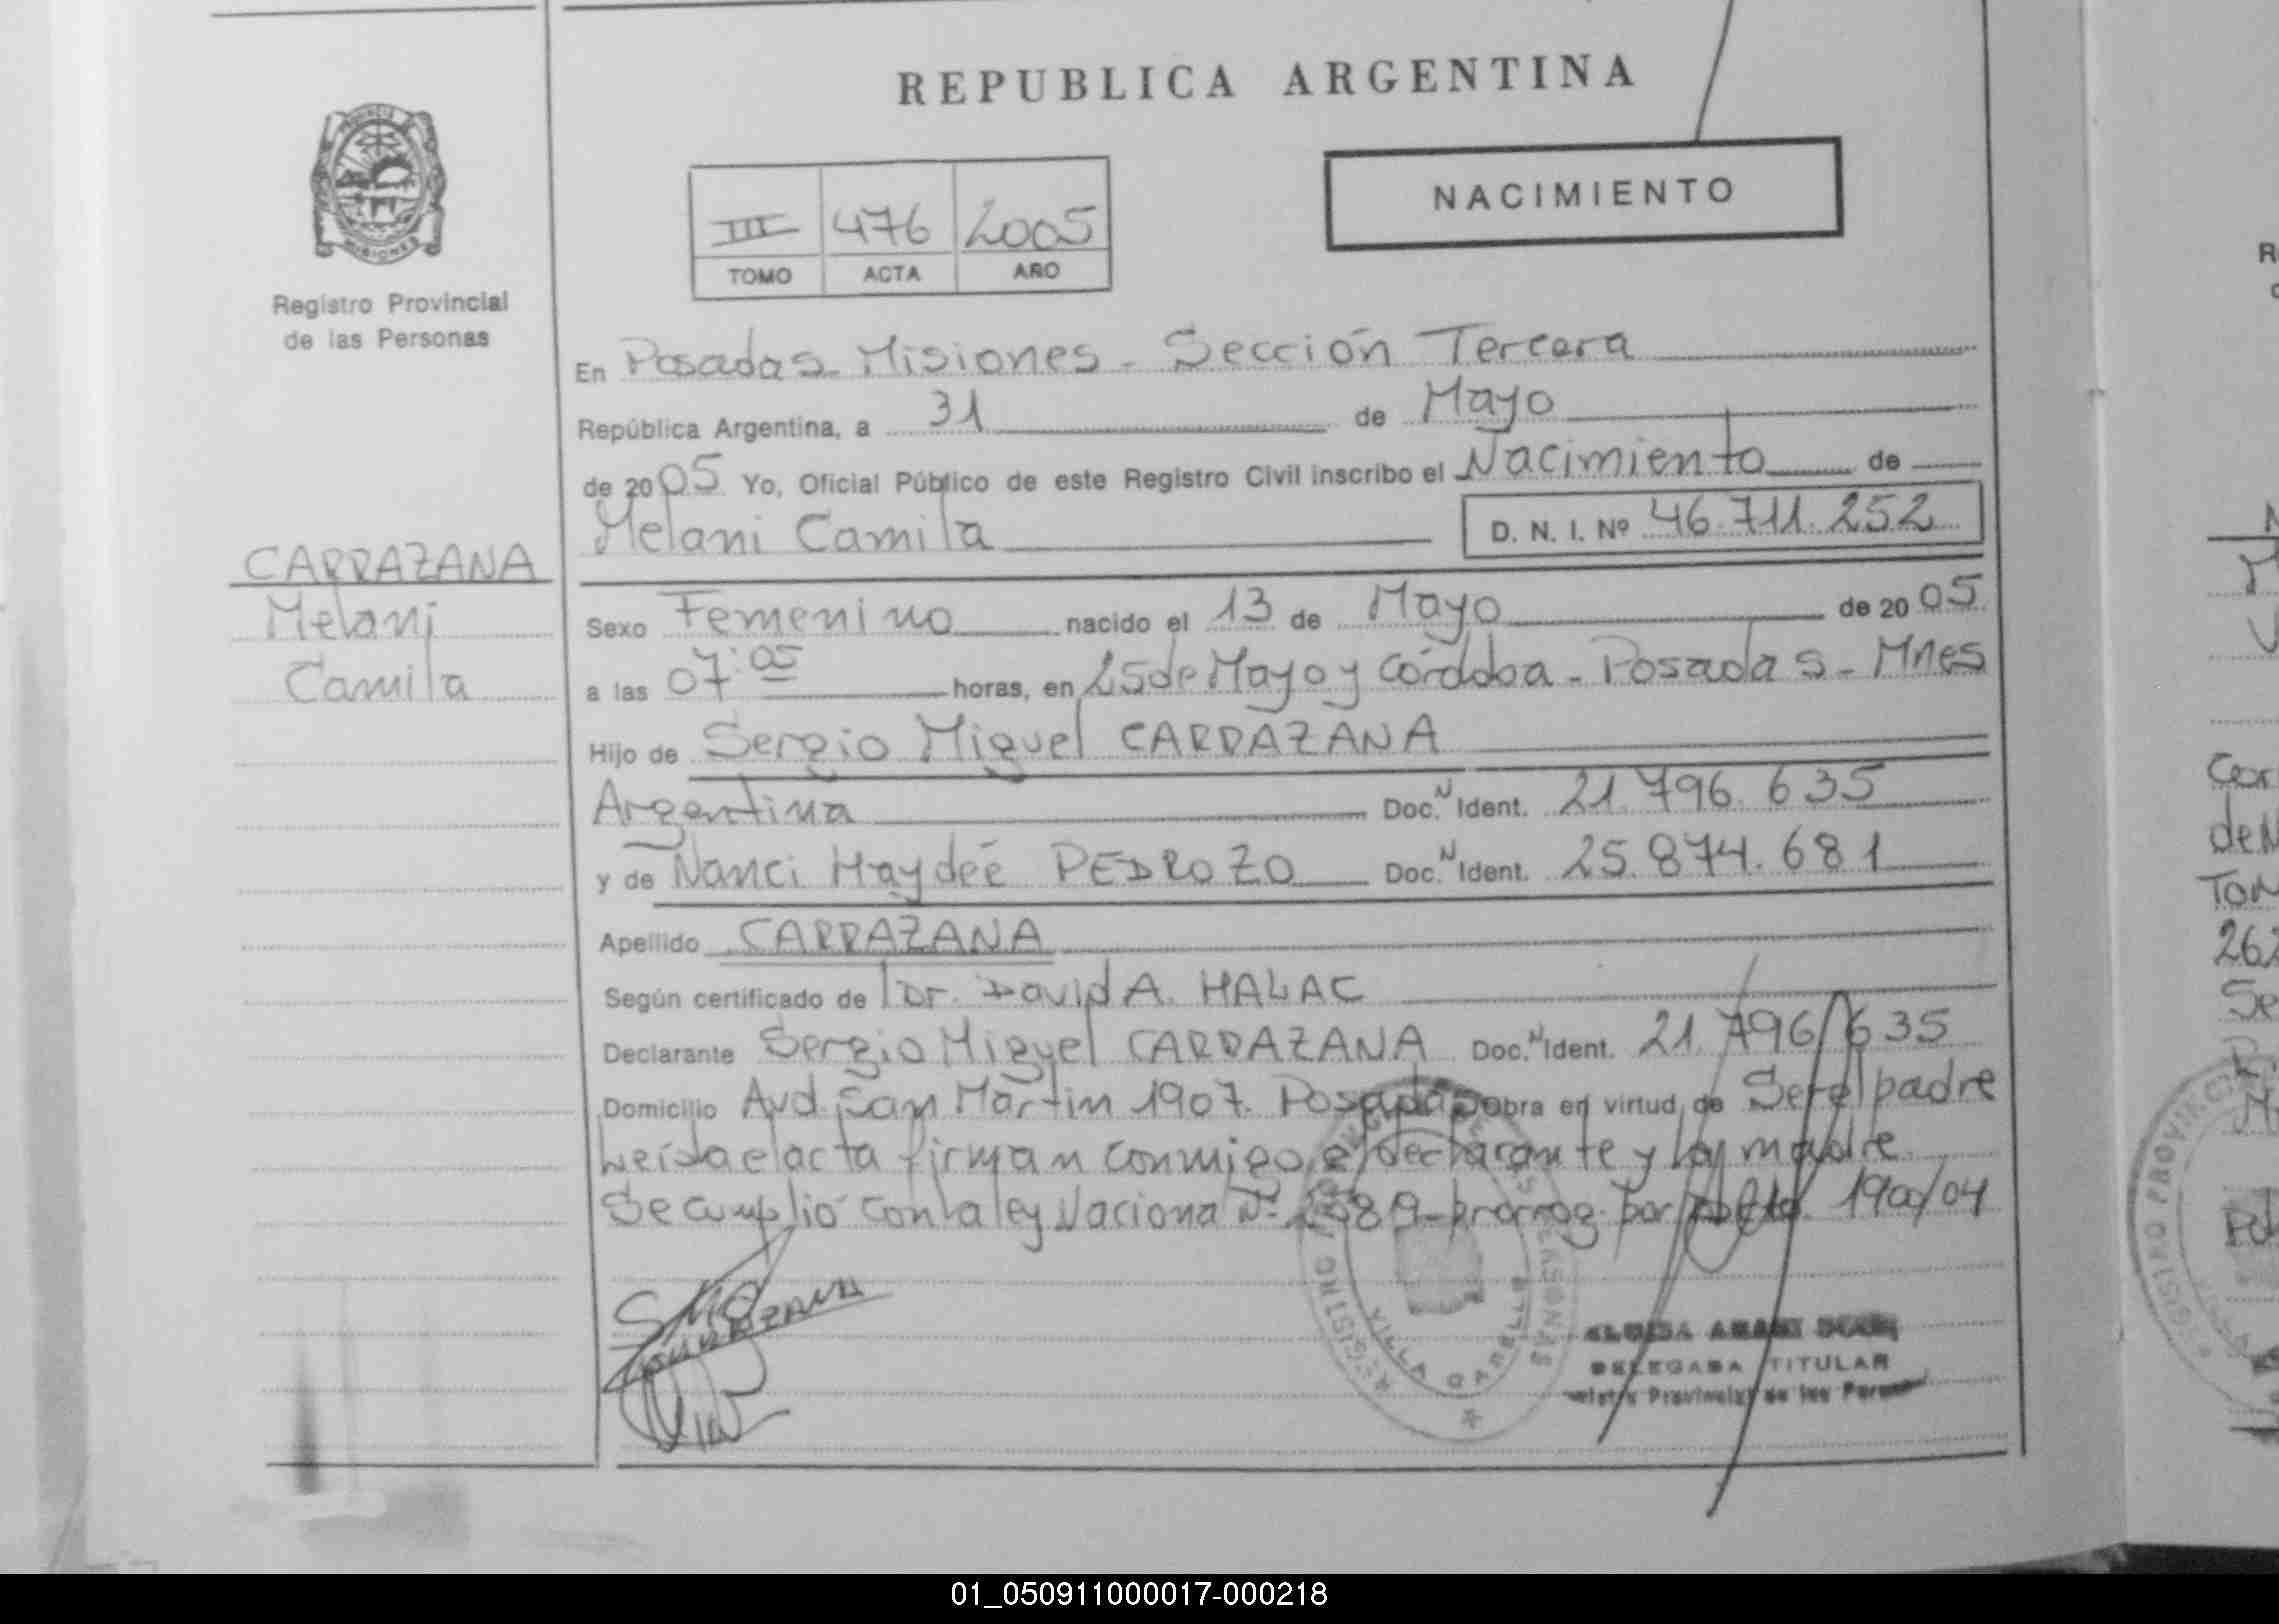 REPUBLICA ARGENTINA
NACIMIENTO
III 476 2005
TOMO ACTA AÑO
PROVINCIA DE MISIONES
Registro Provincial
de las Personas
En Posadas - Misiones - Sección Tercera
República Argentina, a 31 de Mayo
de 2005 Yo, Oficial Público de este Registro Civil inscribo el Nacimiento de
Melani Camila D. N. I. Nº 46.711.252
CARRAZANA
Melani
Camila
Sexo Femenino nacido el 13 de Mayo de 2005
a las 07:05 horas, en 25 de Mayo y Córdoba - Posadas - Mnes
Hijo de Sergio Miguel CARRAZANA
Argentina Doc. N Ident. 21.796.635
y de Nanci Haydeé PEDROZO Doc. N Ident. 25.874.681
Apellido CARRAZANA
Según certificado de Dr. David A. HALAC
Declarante Sergio Miguel CARRAZANA Doc. N Ident. 21.796.635
Domicilio Avd. San Martin 1907. Posadas obra en virtud de Ser el padre
Leída el acta firman conmigo el declarante y la madre
Se cumplió con la ley Naciona Nº prorrog. por 1900/04
REGISTRO PROVINCIAL DE LAS PERSONAS
VILLA CABELLO
DELEGADA TITULAR
Provincial de las
01_050911000017-000218